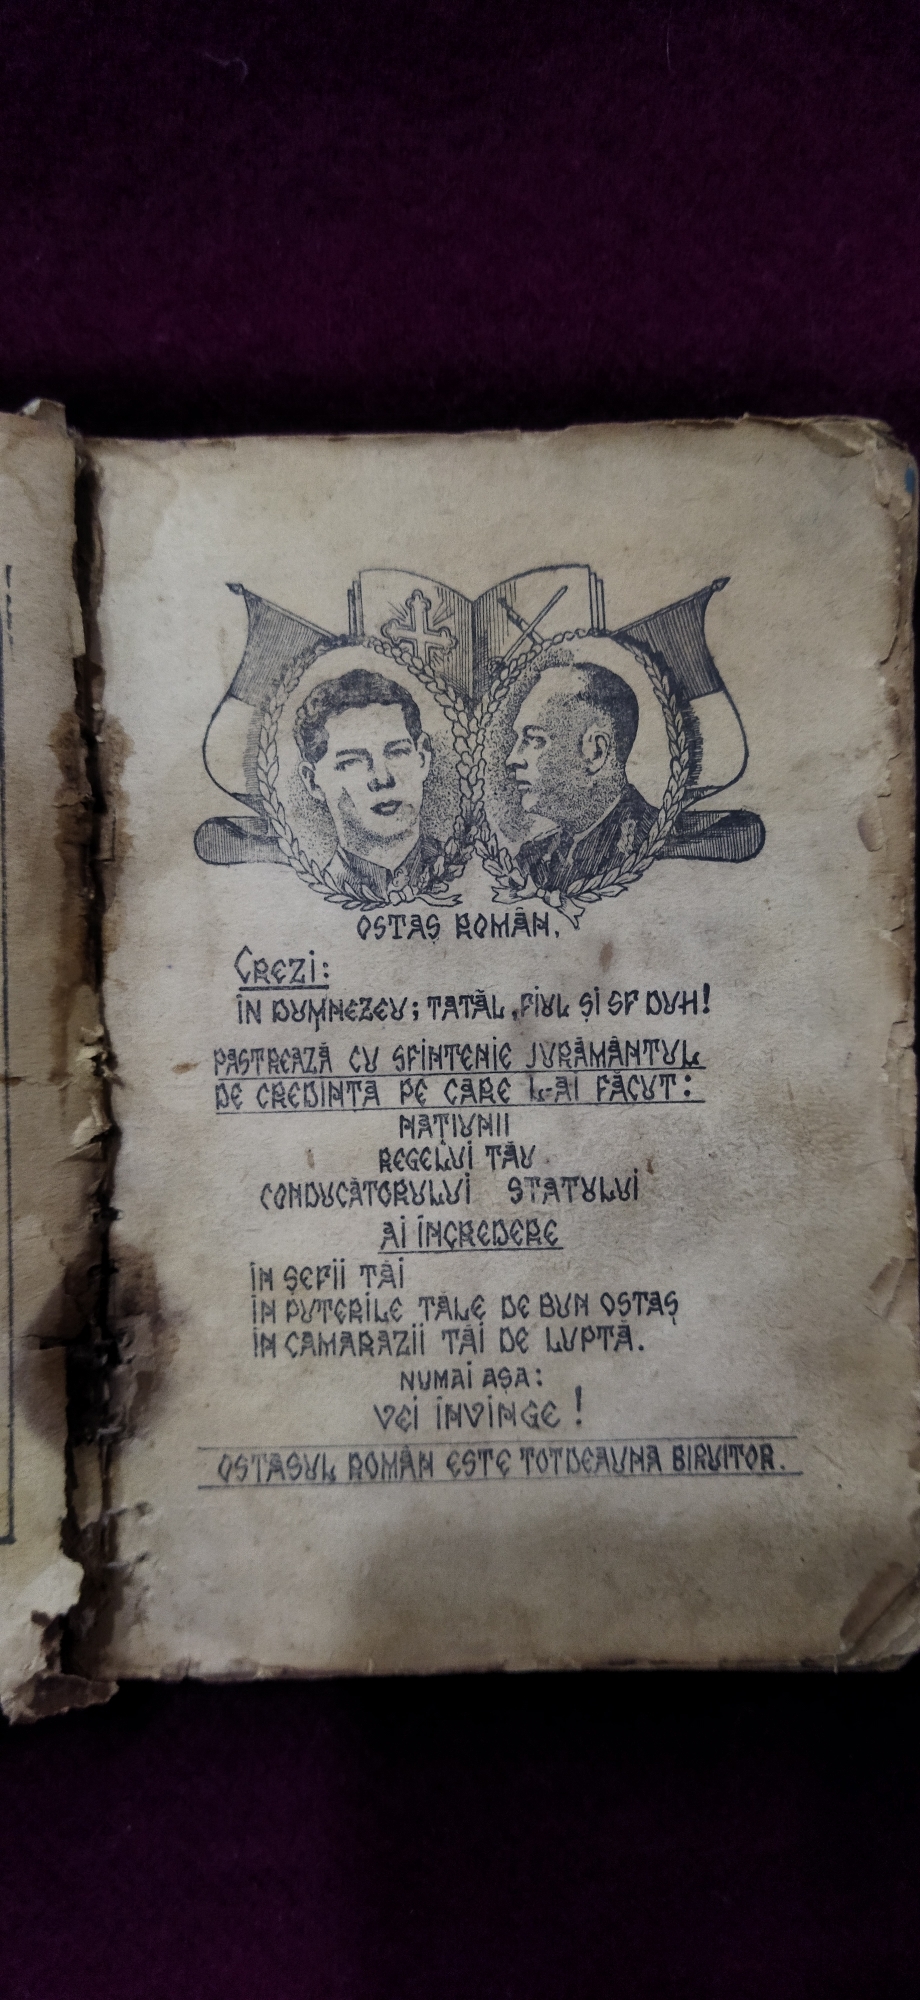 OSTAȘ ROMÂN.
Crezi:
ÎN DUMNEZEU; TATĂL, FIUL ȘI SF DUH!
PASTREAZĂ CU SFINTENIE JURĂMÂNTUL
DE CREDINȚA PE CARE L-AI FĂCUT:
NAȚIUNII
REGELUI TĂU
CONDUCĂTORULUI STATULUI
AI ÎNCREDERE
ÎN ȘEFII TĂI
ÎN PUTERILE TALE DE BUN OSTAȘ
ÎN CAMARAZII TĂI DE LUPTĂ.
NUMAI AȘA:
VEI ÎNVINGE!
OSTASUL ROMÂN ESTE TOTDEAUNA BIRUITOR.